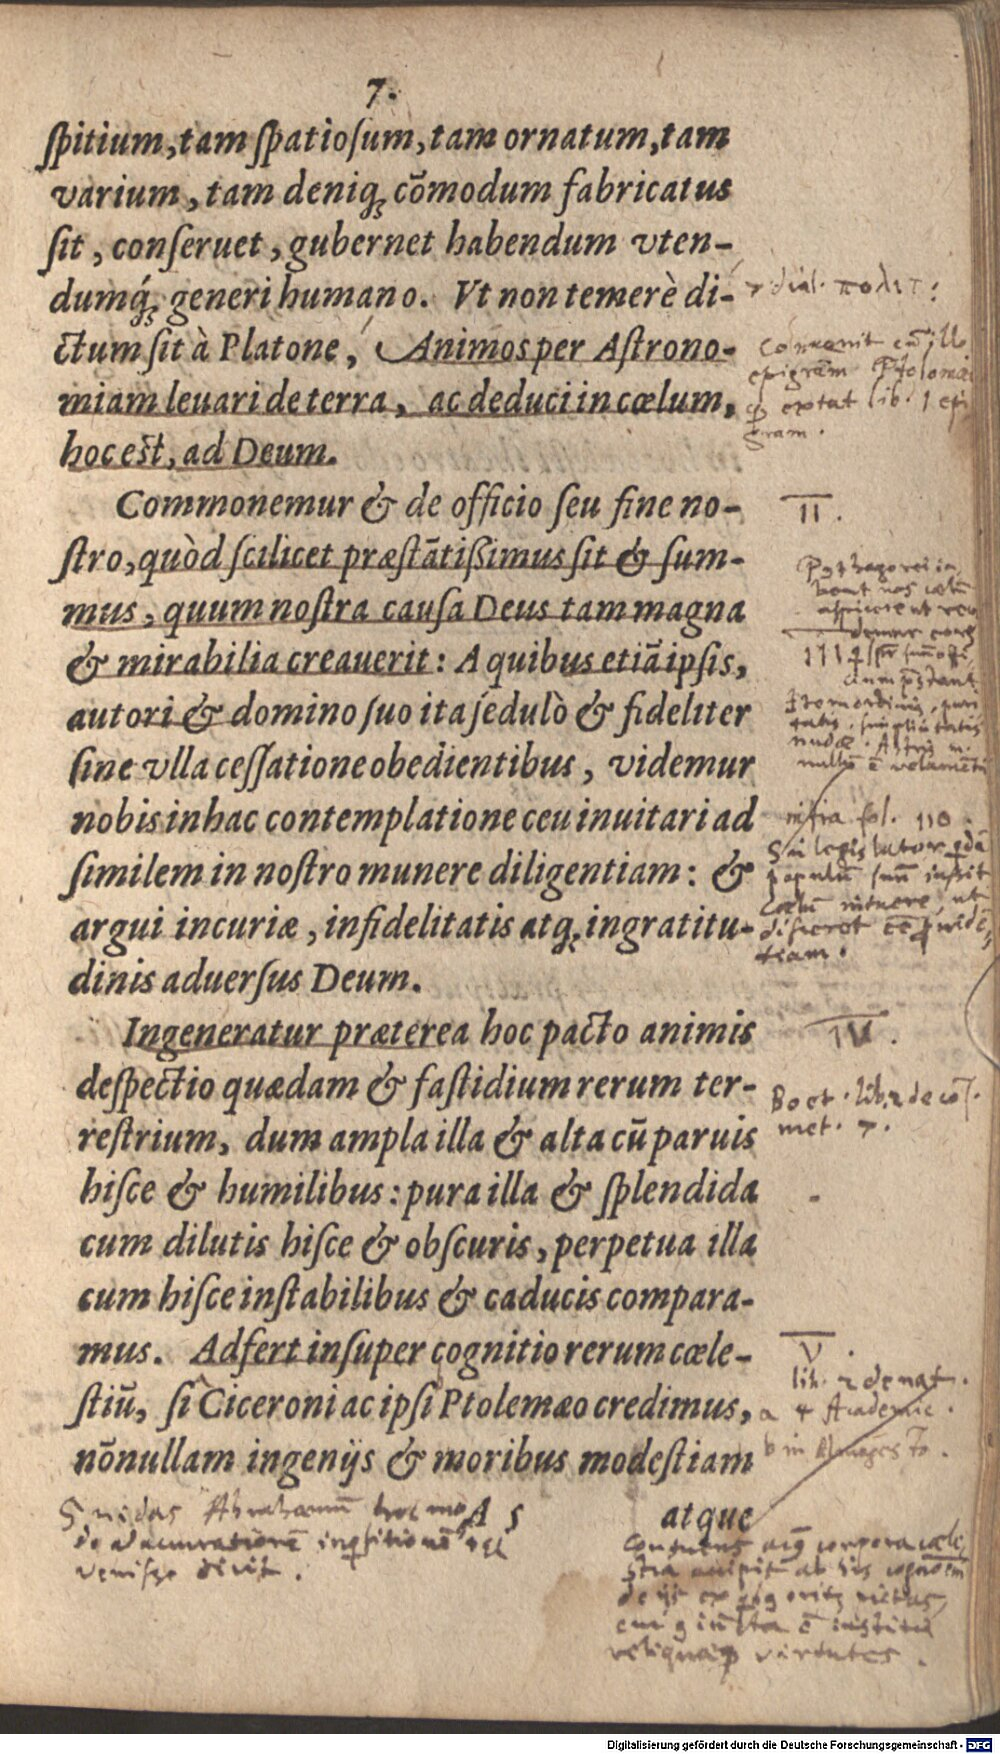 7.
ſpitium, tam ſpatioſum, tam ornatum, tam
varium, tam deniq; cõmodum fabricatus
ſit, conſeruet, gubernet habendum vten-
dumq́; generi humano. Vt non temerè di-
ctum ſit à Platone, Animos per Aſtrono-
miam leuari de terra, ac deduci in cœlum,
hoc eſt, ad Deum.
Commonemur & de officio ſeu fine no-
ſtro, quòd ſcilicet præſtãtißimus ſit & ſum-
mus, quum noſtra cauſa Deus tam magna
& mirabilia creauerit: A quibus etiã ipſis,
autori & domino ſuo ita ſedulò & fideliter
ſine vlla ceſſatione obedientibus, videmur
nobis in hac contemplatione ceu inuitari ad
ſimilem in noſtro munere diligentiam: &
argui incuriæ, infidelitatis atq; ingratitu-
dinis aduerſus Deum.
Ingeneratur præterea hoc pacto animis
deſpectio quædam & faſtidium rerum ter-
reſtrium, dum ampla illa & alta cũ paruis
hiſce & humilibus: pura illa & ſplendida
cum dilutis hiſce & obſcuris, perpetua illa
cum hiſce inſtabilibus & caducis compara-
mus. Adfert inſuper cognitio rerum cœle-
ſtiũ, ſi Ciceroni ac ipſi Ptolemæo credimus,
nõnullam ingenijs & moribus modeſtiam
A 5 atque
dial. πολιτ:
Conuenit cũ illo
epigram Ptolomæi
extat lib. 1 epi
gram.
II.
Pythagorei iu
bent nos cœlũ
aspicere ut
III
infra fol. 110.
populũ suũ
cœlũ intuere, ut
IV.
Boet. lib. 2 de coſ.
met. 7.
V.
lib. 2 de nat.
a 4 Academic.
b in Almagesto.
Suidas Abrahamum hoc mo
do ad accuratiorẽ
venisse dicit.
corpora cœle
stia
reliquæq virtutes.
Digitalisierung gefördert durch die Deutsche Forschungsgemeinschaft - DFG